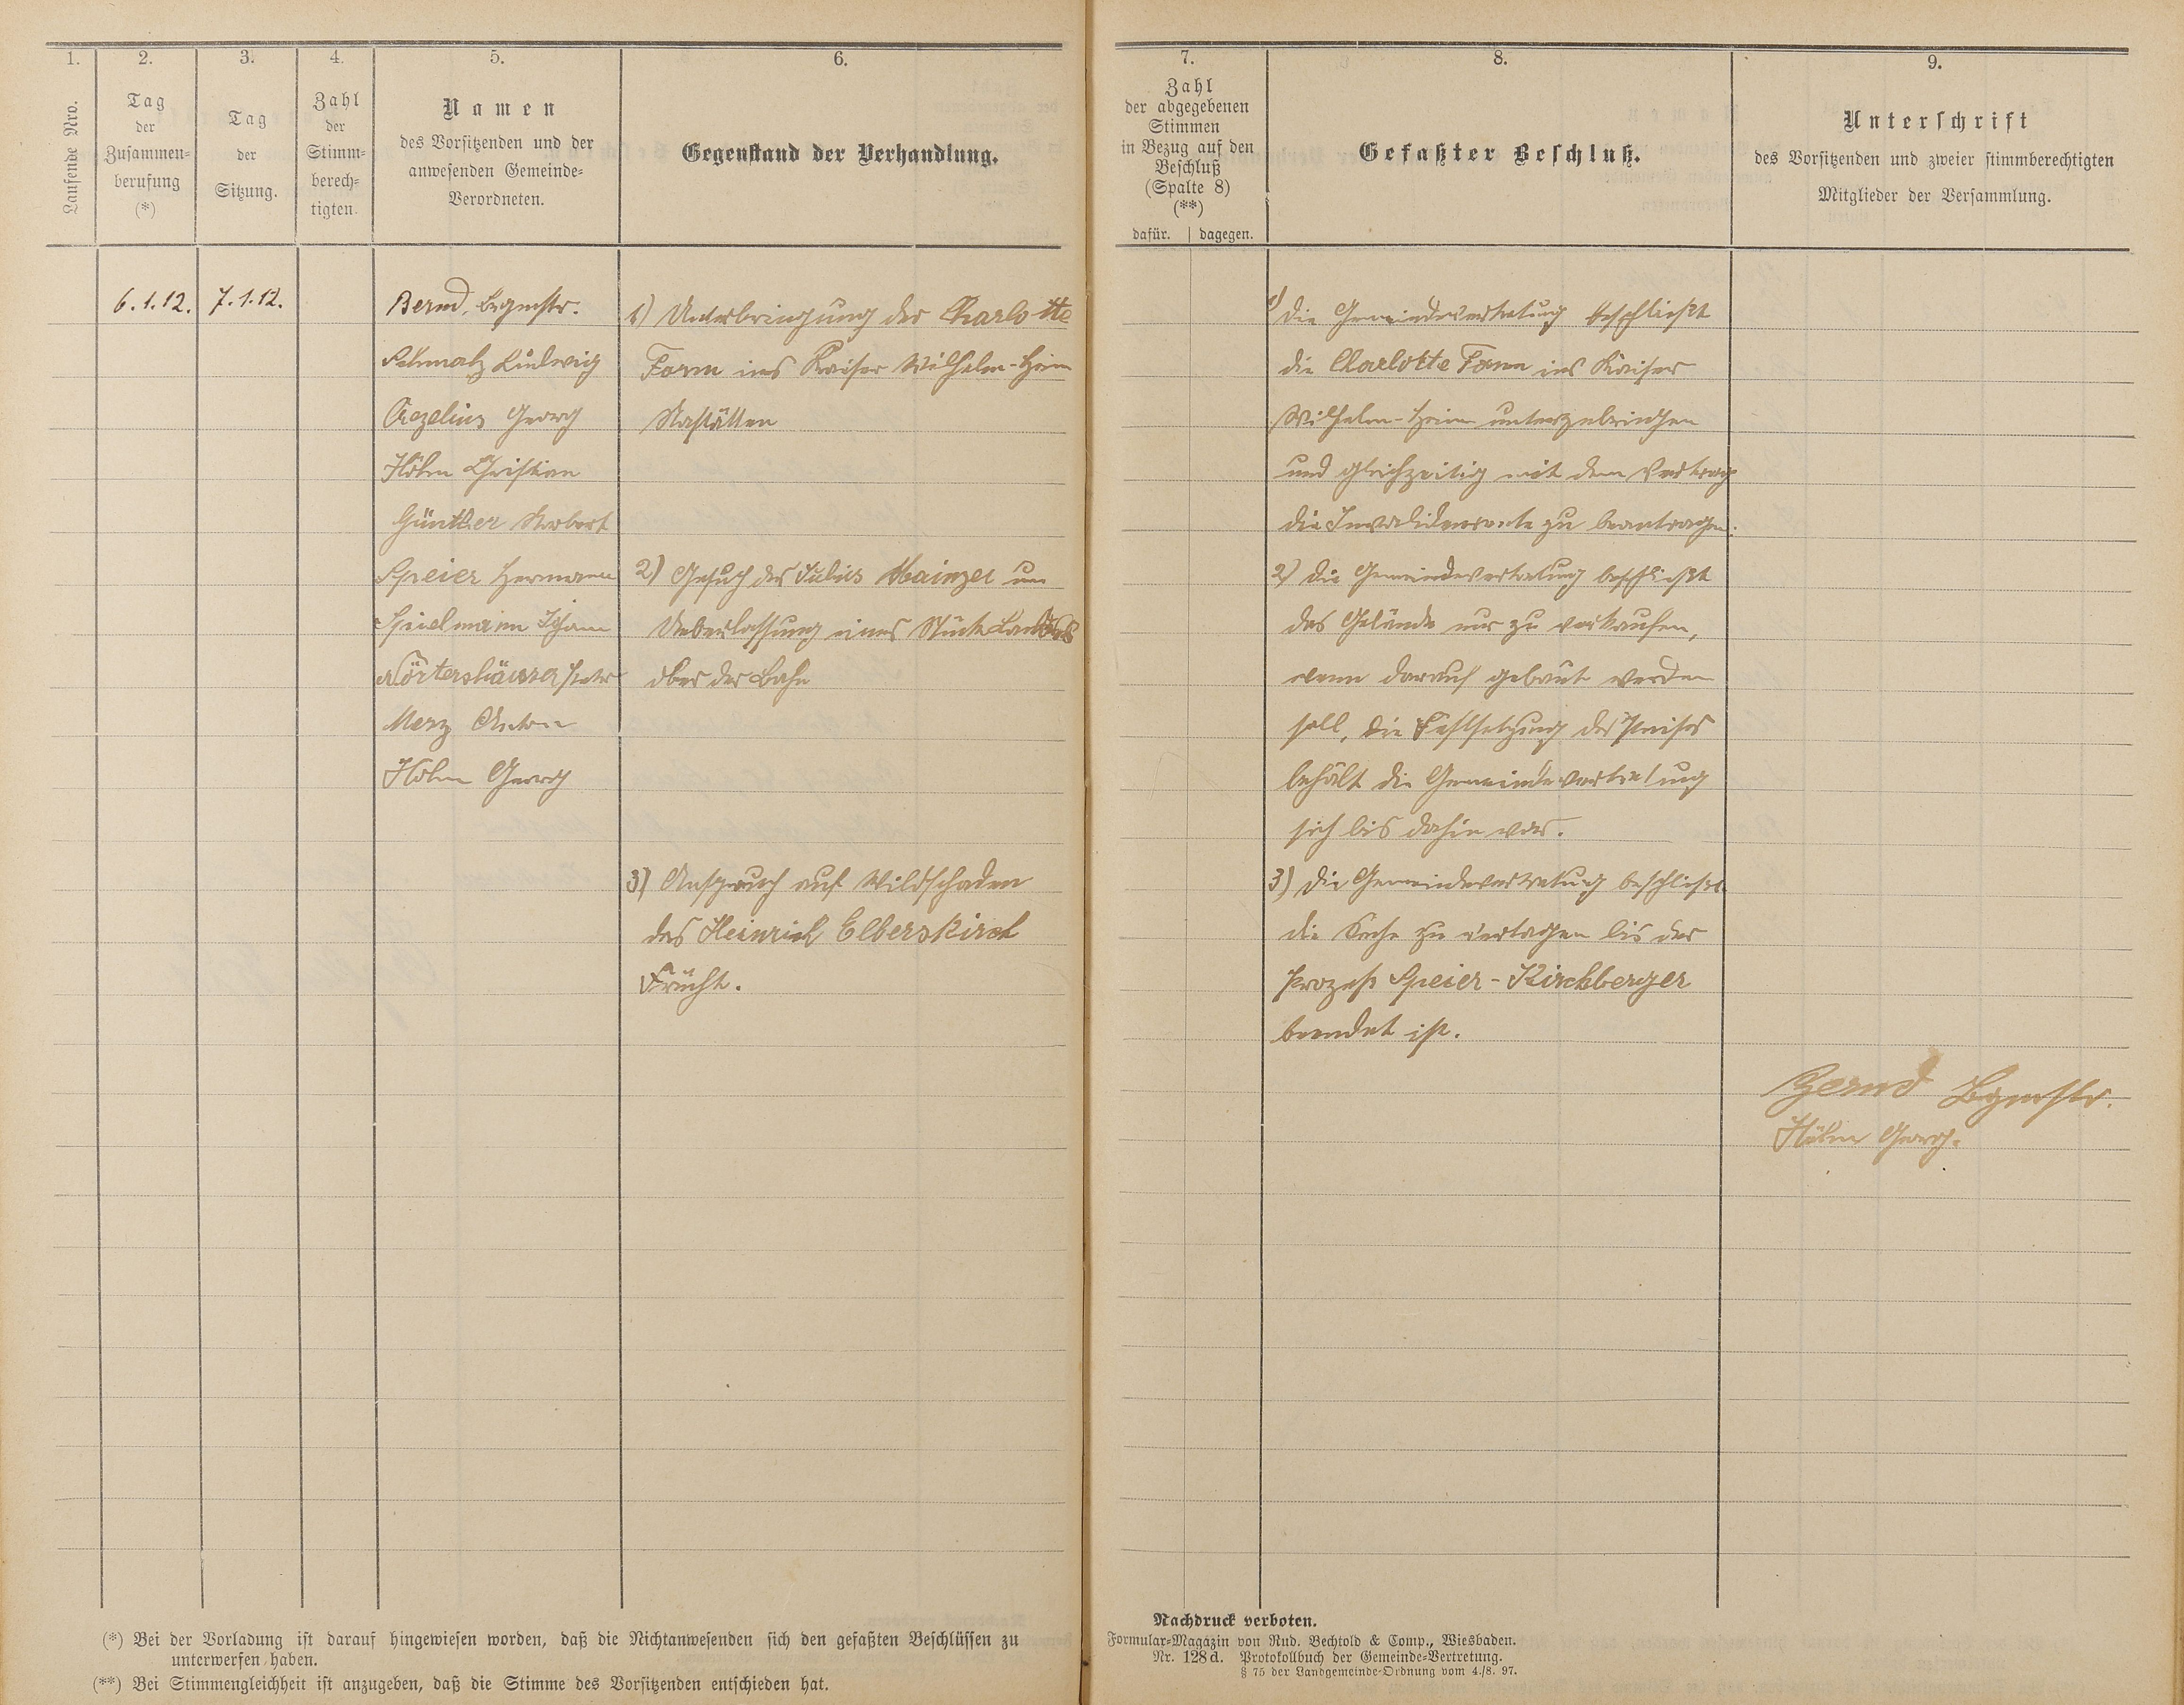 1.
Laufende Nro.
2.
Tag
der
Zusammen=
berufung
(*)
3.
Tag
der
Sitzung.
4.
Zahl
der
Stimm=
berech=
tigten.
5.
Namen
des Vorsitzenden und der
anwesenden Gemeinde=
Verordneten.
6.
Gegenstand der Verhandlung.
6.1.12.
7.1.12.
Bernd, Brgmstr.
Schmalz Ludwig
Georg
Höhn Christian
Günther Norbert
Speier Hermann
Spielmann Johann
Nörtershäuser Peter
Merz Anton
Höhn Georg
1) Unterbringung der Charlotte
Form ins Kaiser Wilhelm-Heim
Nastätten
2) Gesuch des Julius Mainzer um
Ueberlassung eines Stück Landes
ober der Bahn
3) Anspruch auf Wildschaden
des Heinrich Elberskirch
Frücht.
(*) Bei der Vorladung ist darauf hingewiesen worden, daß die Nichtanwesenden sich den gefaßten Beschlüssen zu
unterwerfen haben.
(**) Bei Stimmengleichheit ist anzugeben, daß die Stimme des Vorsitzenden entschieden hat.
7.
Zahl
der abgegebenen
Stimmen
in Bezug auf den
Beschluß
(Spalte 8)
(**)
dafür. | dagegen.
8.
Gefaßter Beschluß.
9.
Unterschrift
des Vorsitzenden und zweier stimmberechtigten
Mitglieder der Versammlung.
1) die Gemeindevertretung beschließt
die Charlotte Form ins Kaiser
Wilhelm-Heim unterzubringen
und gleichzeitig mit dem Vertrag
die Invalidenrente zu beantragen.
2) die Gemeindevertretung beschließt
das Gelände nur zu verkaufen,
wenn darauf gebaut werden
soll, die Festsetzung des Preises
behält die Gemeindevertretung
sich bis dahin vor.
3) die Gemeindevertretung beschließt
die Sache zu vertagen bis der
Prozeß Speier-Kirchberger
beendet ist.
Bernd Bgmstr.
Höhn Georg.
Nachdruck verboten.
Formular=Magazin von Rud. Bechtold & Comp., Wiesbaden.
Nr. 128d. Protokollbuch der Gemeinde=Vertretung.
§ 75 der Landgemeinde=Ordnung vom 4./8. 97.